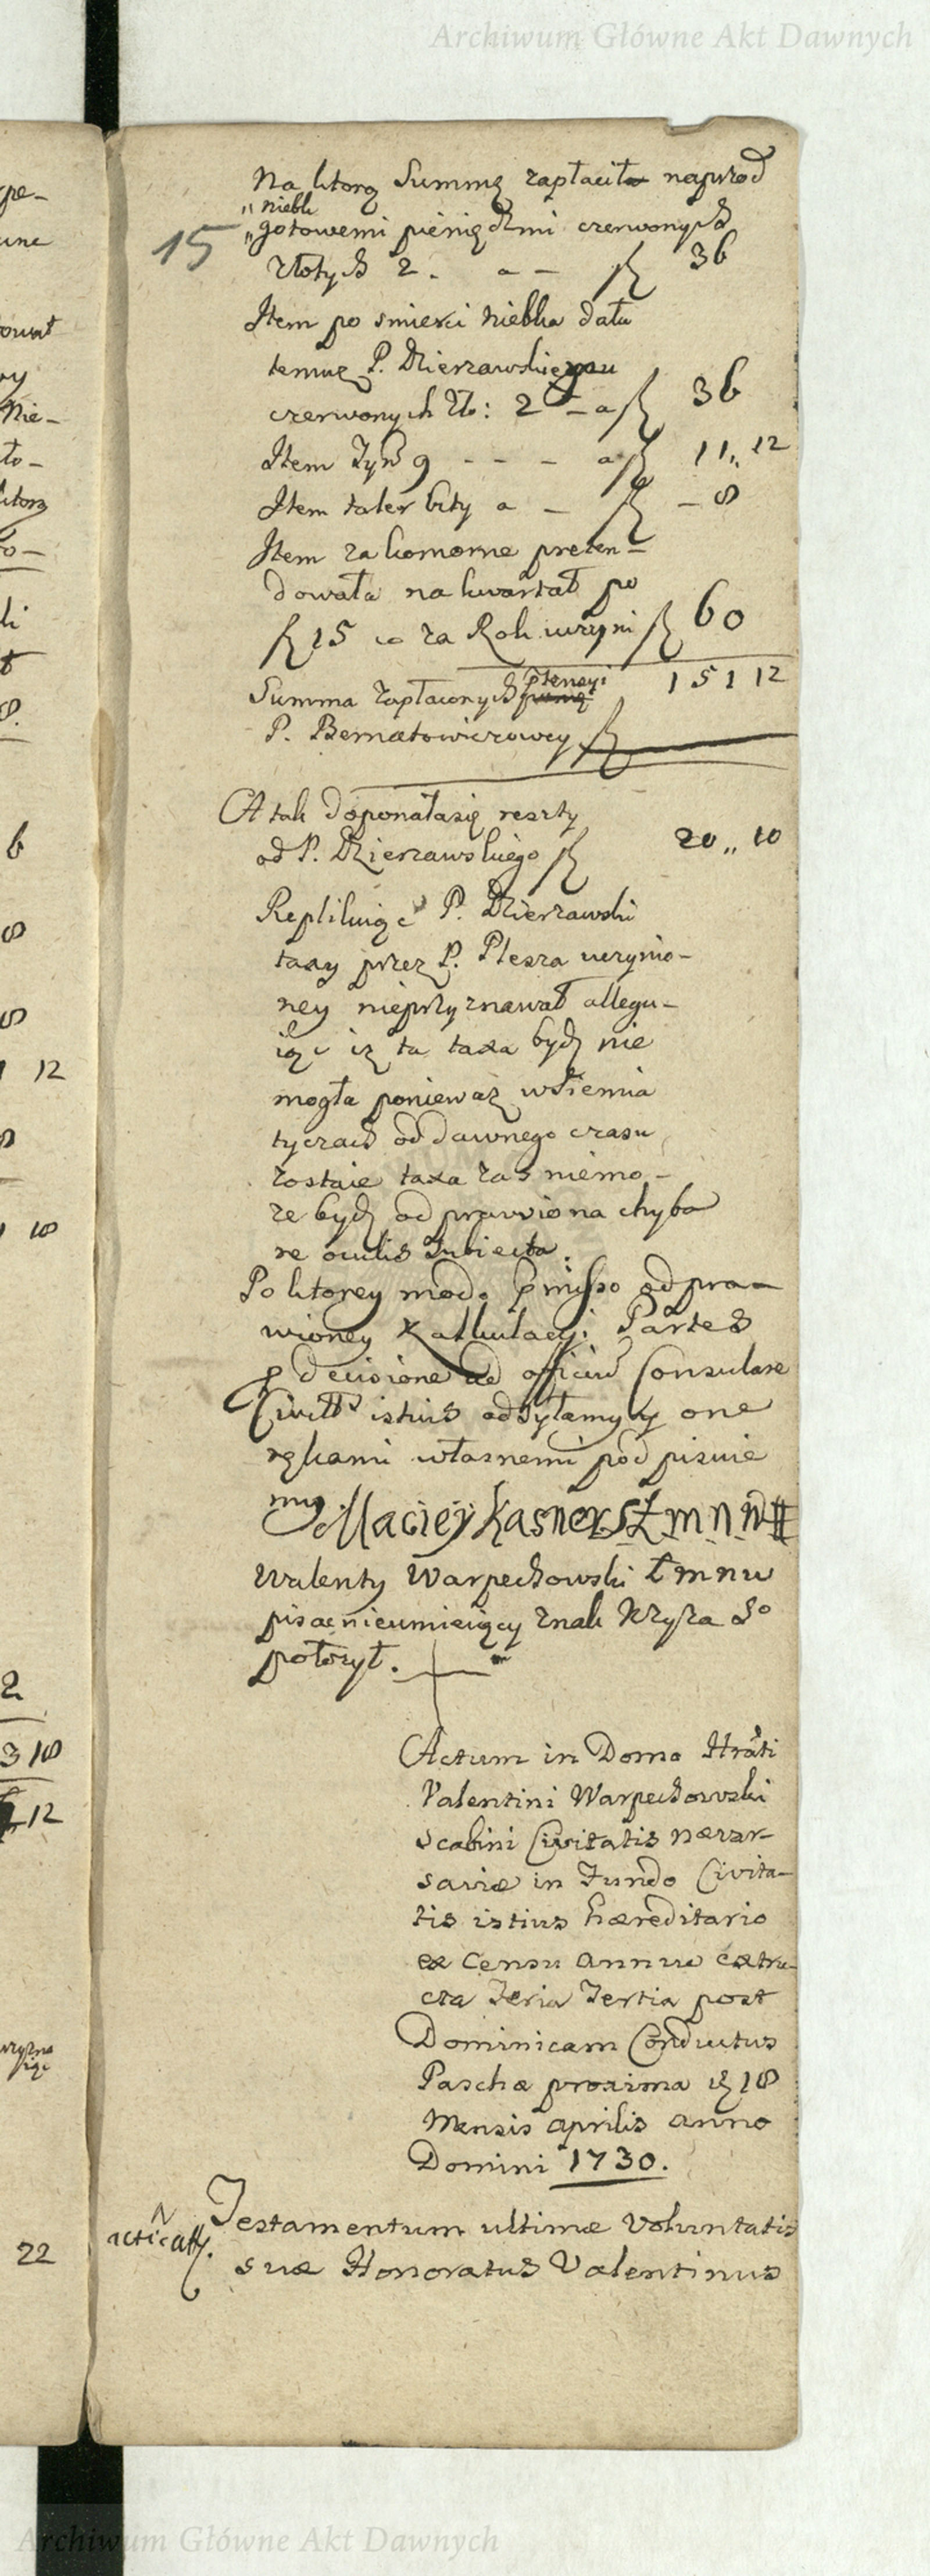 Archiwum Główne Akt Dawnych
Na ktorą Summę zapłacił naprzod
" niebk
15 " gotowemi pieniędzmi czerwonych
złotych 2. a – f 36
Item po smierci Niebka dała
temuz P. Dzierzawskiemu
czerwonych zł: 2 – a f 36
Item Tynf 9 - - - a f 11,, 12
Item taler bity a – f – 8
Item za komorne preten-
dowała na kwartał po
f 15 co za Rok uczyni f 60
Summa zapłaconych 151 12
P. Bernatowiczowey f
A tak doponałasię reszty
od P. Dzierzawskiego f 20,, 10
Replikuiąc P. Dzierzawski
taxy przez P. Plesza uczynio-
ney nieprzyznawał allegu-
iąc iz ta taxa bydz nie
mogła poniewaz wSiemia
tyczach od dawnego czasu
zostaie taxa zas niemo-
ze bydz odprawiona chyba
re oculis Subiecta.
Po ktorey modo pmisso odpra-
wioney Kalkulacyi Partes
p decisione ad officiu Consulare
Civittis istius odsyłamy y one
rękami własnemi podpisuie
my. Maciey Kasner SŁ m n w
Walenty Warpechowski Ł m n w
pisac nieumieiący znak Krzyza So
połozył. +
Actum in Domo Hrati
Valentini Warpechowski
Scabini Civitatis Navar-
saviæ in Fundo Civita-
tis istius hæreditario
ex Censu annuo extru-
cta Feria Tertia post
Dominicam Conductus
Paschæ proxima 18
Mensis aprilis anno
Domini 1730.
Testamentum ultimæ Voluntatis
suæ Honoratus Valentinus
Archiwum Główne Akt Dawnych